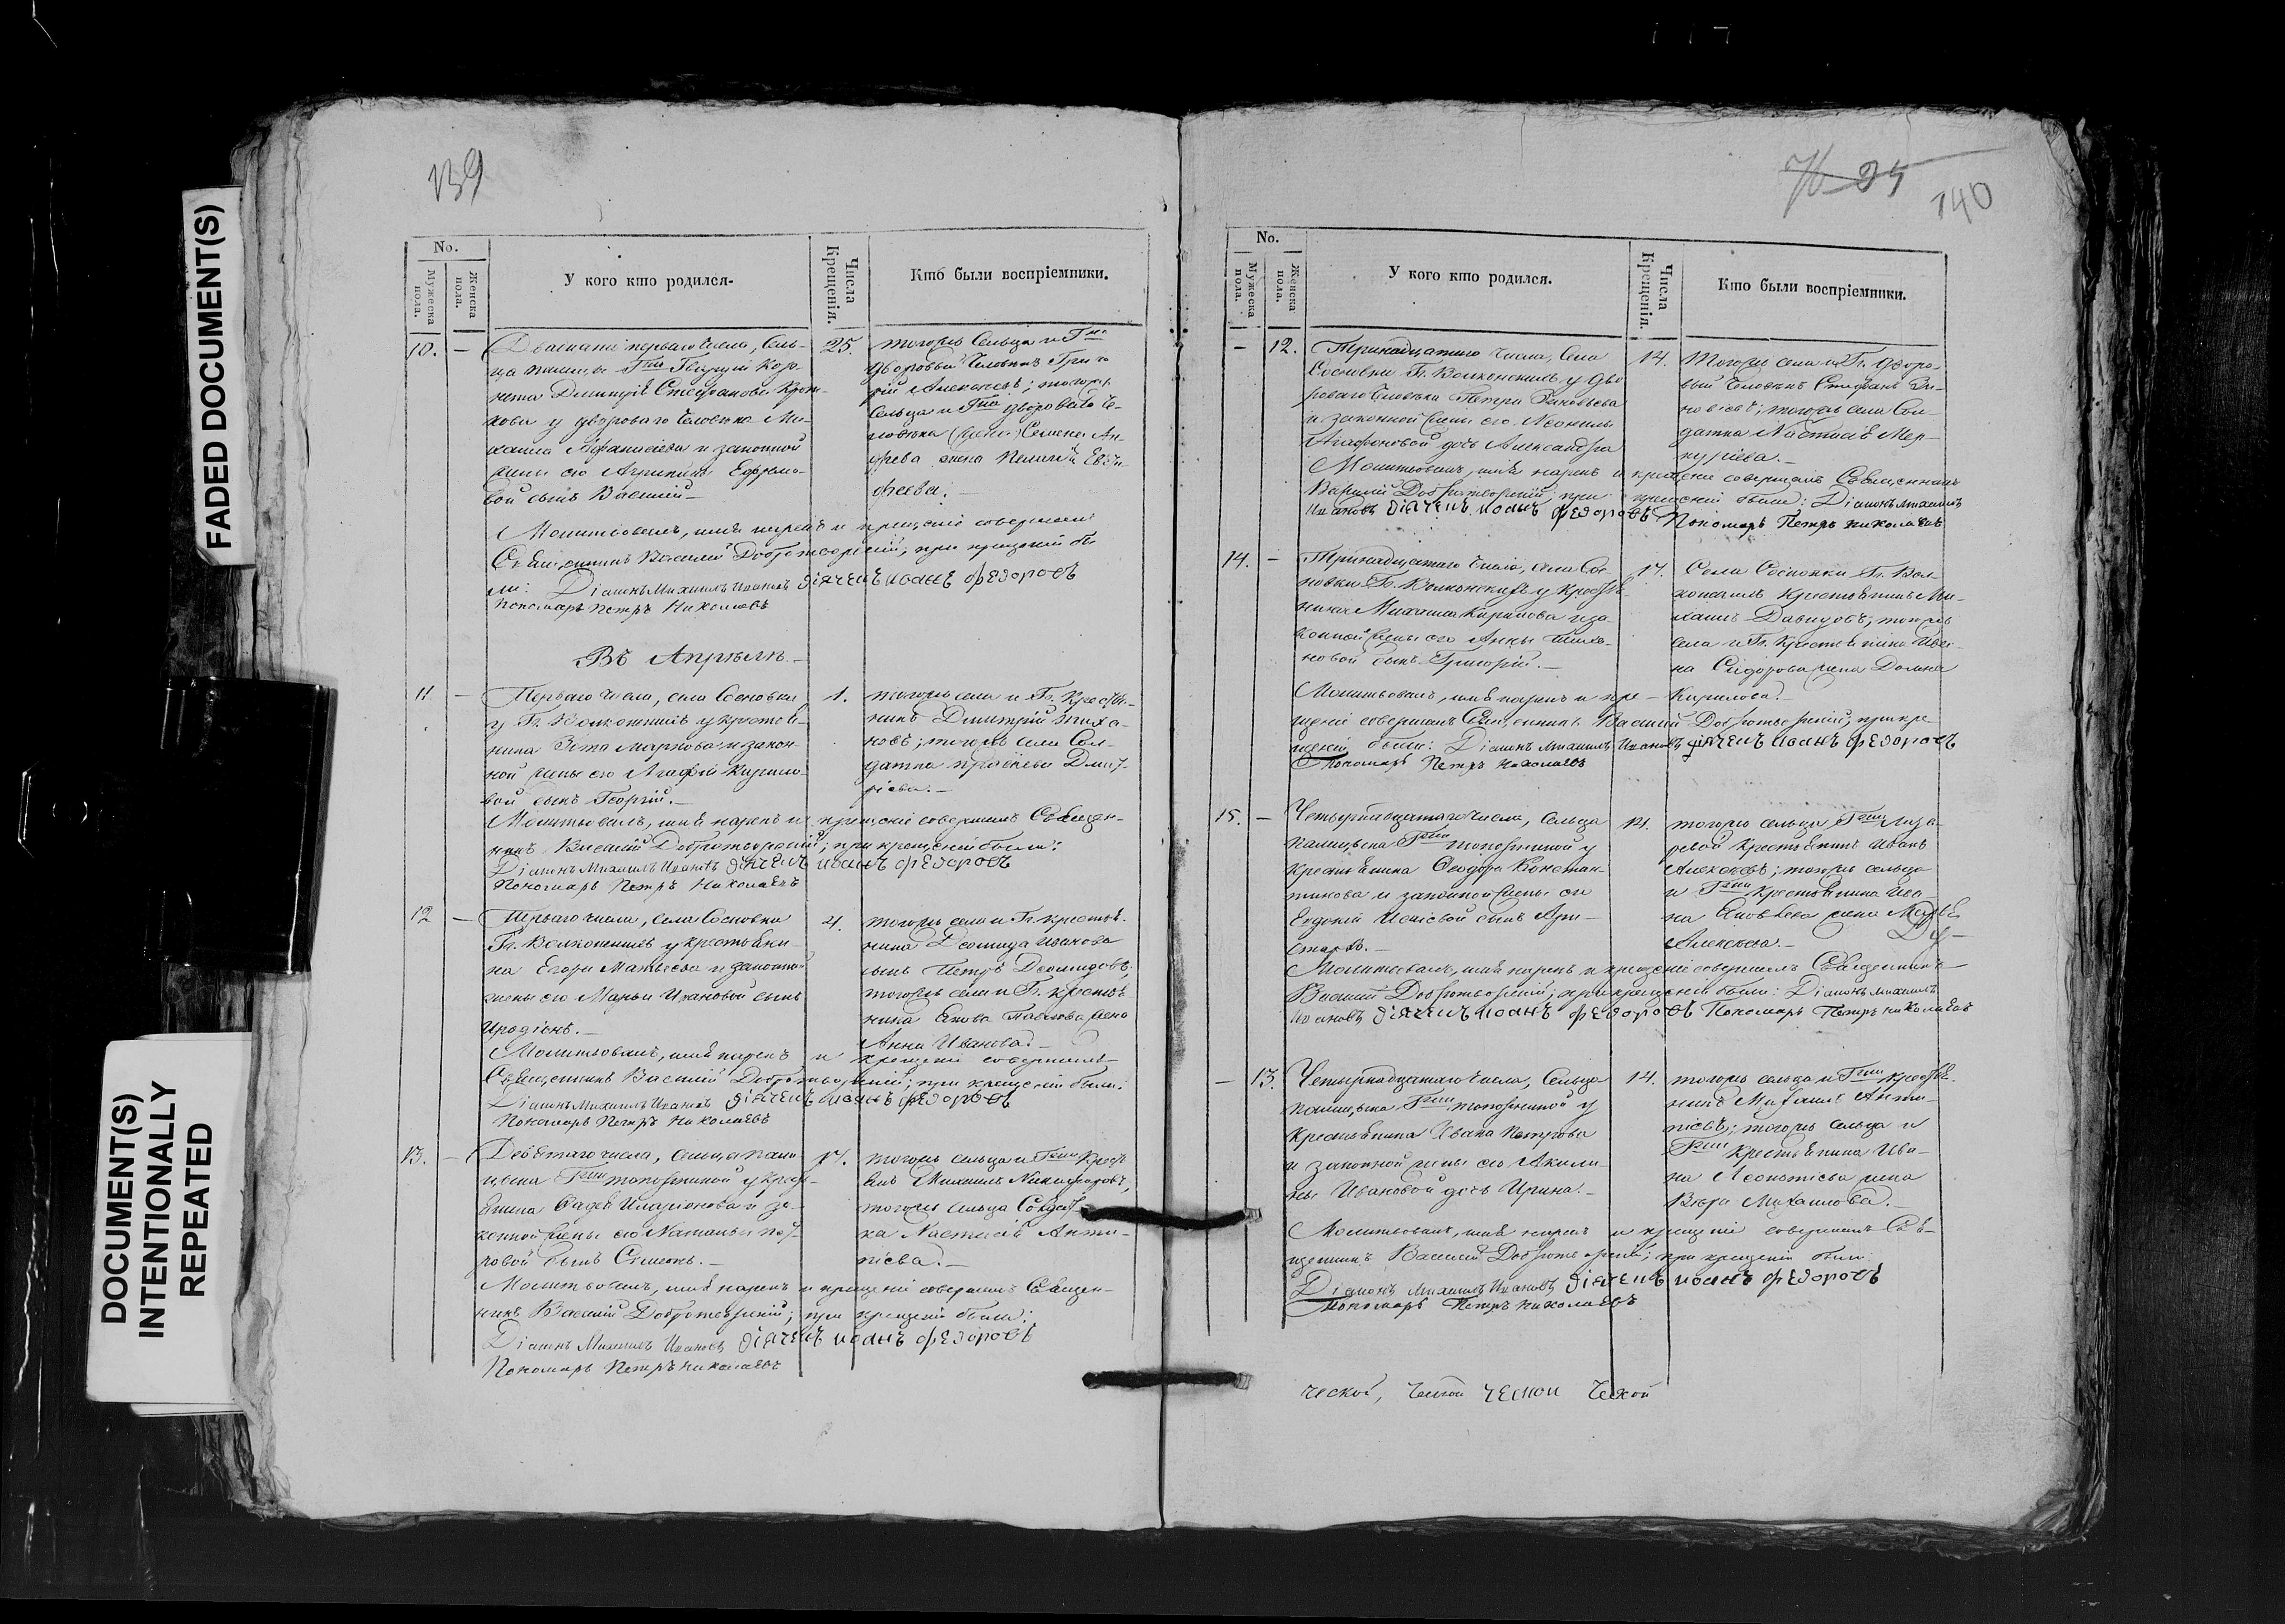 FADED DOCUMENT(S)
DOCUMENT(S)
INTENTIONALLY
REPEATED
139
No.
Мужеска пола.
Женска пола.
У кого кто родился.
Числа Крещенія.
Кто были воспріемники.
10. —
Двадцать перваго числа, Сель-
у двороваго человѣка Ми-
хаила Афанасіева и законной
жены его Агрипины Ефремо-
вой сынъ Василій —
25.
тогожъ Сельца и Гна
дворовый человѣкъ Григо
рій Алексѣевъ; тогожъ
Сельца и Гна двороваго че-
ловѣка Семена Ан-
дреева жена Пелагія
Молитвовалъ, имя нарекъ и крещеніе совершалъ
Священникъ Василій Добротворскій; при крещеніи бы-
ли: Діаконъ Михаилъ Ивановъ Діячекъ Иоанъ Федоровъ
Пономарь Петръ Николаевъ
Въ Апрѣлѣ. —
11 —
Перваго числа, села Сосновки
у Гг. Волконскихъ у крестья-
нина Зота Маркова и закон-
ной жены его Агафіи Кирило-
вой сынъ Георгій. —
1.
тогожъ села и Гг. крестья-
нинъ Дмитрій Тихо-
новъ; тогожъ села Сол-
датка Дмит-
ріева. —
Молитвовалъ, имя нарекъ и крещеніе совершалъ Священ-
никъ Василій Добротворскій; при крещеніи были:
Діаконъ Михаилъ Ивановъ Діячекъ Иоанъ Федоровъ
Пономарь Петръ Николаевъ
12 —
Перваго числа, Села Сосновки
Гг. Волконскихъ у крестьяни-
на Егора Матвѣева и законной
жены его Марьи Ивановой сынъ
Иродіонъ. —
4.
тогожъ села и Гг. крестья-
нина Деомида Иванова
сынъ Петръ Деомидовъ;
тогожъ села и Гг. крестья-
нина Якова Павлова жена
Анна Иванова. —
Молитвовалъ, имя нарекъ и крещеніе совершалъ
Священникъ Василій Добротворскій; при крещеніи были:
Діаконъ Михаилъ Ивановъ Діячекъ Иоанъ Федоровъ
Пономарь Петръ Николаевъ
13. —
Девятаго числа, сельца
Гжи у крест-
янина Фадея Иларіонова и за-
конной жены его Натальи
сынъ Симеонъ. —
тогожъ сельца и Гжи крест
янъ Михаилъ Никифоровъ;
тогожъ сельца Солдат-
ка Настасія Анти-
піева. —
Молитвовалъ, имя нарекъ и крещеніе совершалъ Священ-
никъ Василій Добротворскій; при крещеніи были:
Діаконъ Михаилъ Ивановъ Діячекъ Иоанъ Федоровъ
Пономарь Петръ Николаевъ
140
No.
Мужеска пола.
Женска пола.
У кого кто родился.
Числа Крещенія.
Кто были воспріемники.
— 12.
Тринадцатаго числа, Села
Сосновки Гг. Волконскихъ у дво
роваго человѣка Петра Зиновьева
и законной жены его Неонилы
Агафоновой дочь Александра
14.
Тогожъ села и Гг. дворо-
вый человѣкъ Стефанъ Зи-
новіевъ; тогожъ села Сол-
датка Настасія Мер-
куріева. —
Молитвовалъ, имя нарекъ и крещеніе совершалъ Священникъ
Василій Добротворскій; при крещеніи были: Діаконъ Михаилъ
Ивановъ Діячекъ Иоанъ Федоровъ Пономарь Петръ Николаевъ
14. —
Тринадцатаго числа, села Сос-
новки Гг. Волконскихъ у крестья-
нина Михаила Кирилова и за-
конной жены его Анны Тихо-
новой сынъ Григорій. —
Села Сосновки Гг. Вол-
конскихъ крестьянинъ Ми-
хаилъ Давидовъ; тогожъ
села и Гг. крестьянина Ива-
на Сидорова жена Домна
Кирилова. —
Молитвовалъ, имя нарекъ и кре-
щеніе совершалъ Священникъ Василій Добротворскій; при кре-
щеніи были: Діаконъ Михаилъ Ивановъ Діячекъ Иоанъ Федоровъ
Пономарь Петръ Николаевъ
15. —
Четырнадцатаго числа, Сельца
Гжи у
крестьянина Феодора Констан-
тинова и законной жены его
Евдокіи Исаевой сынъ Ари-
стархъ. —
14.
тогожъ сельца Гжи Лаза-
ревой крестьянинъ Иванъ
Алексѣевъ; тогожъ сельца
и Гжи крестьянина Ива-
на Яковлева жена Марѳа
Алексѣева. —
Молитвовалъ, имя нарекъ и крещеніе совершалъ Священникъ
Василій Добротворскій; при крещеніи были: Діаконъ Михаилъ
Ивановъ Діячекъ Иоанъ Федоровъ Пономарь Петръ Николаевъ
— 13.
Четырнадцатаго числа, Сельца
Гжи у
крестьянина Ивана Петрова
и законной жены его Акили-
ны Ивановой дочь Ирина. —
14.
тогожъ сельца и Гжи крестья-
нинъ Михаилъ Анти-
піевъ; тогожъ сельца и
Гжи крестьянина Ива-
на Леонтіева жена
Вера Михаилова. —
Молитвовалъ, имя нарекъ и крещеніе совершалъ Свя-
щенникъ Василій Добротворскій; при крещеніи были
Діаконъ Михаилъ Ивановъ Діячекъ Иоанъ Федоровъ
Пономарь Петръ Николаевъ
ческой,